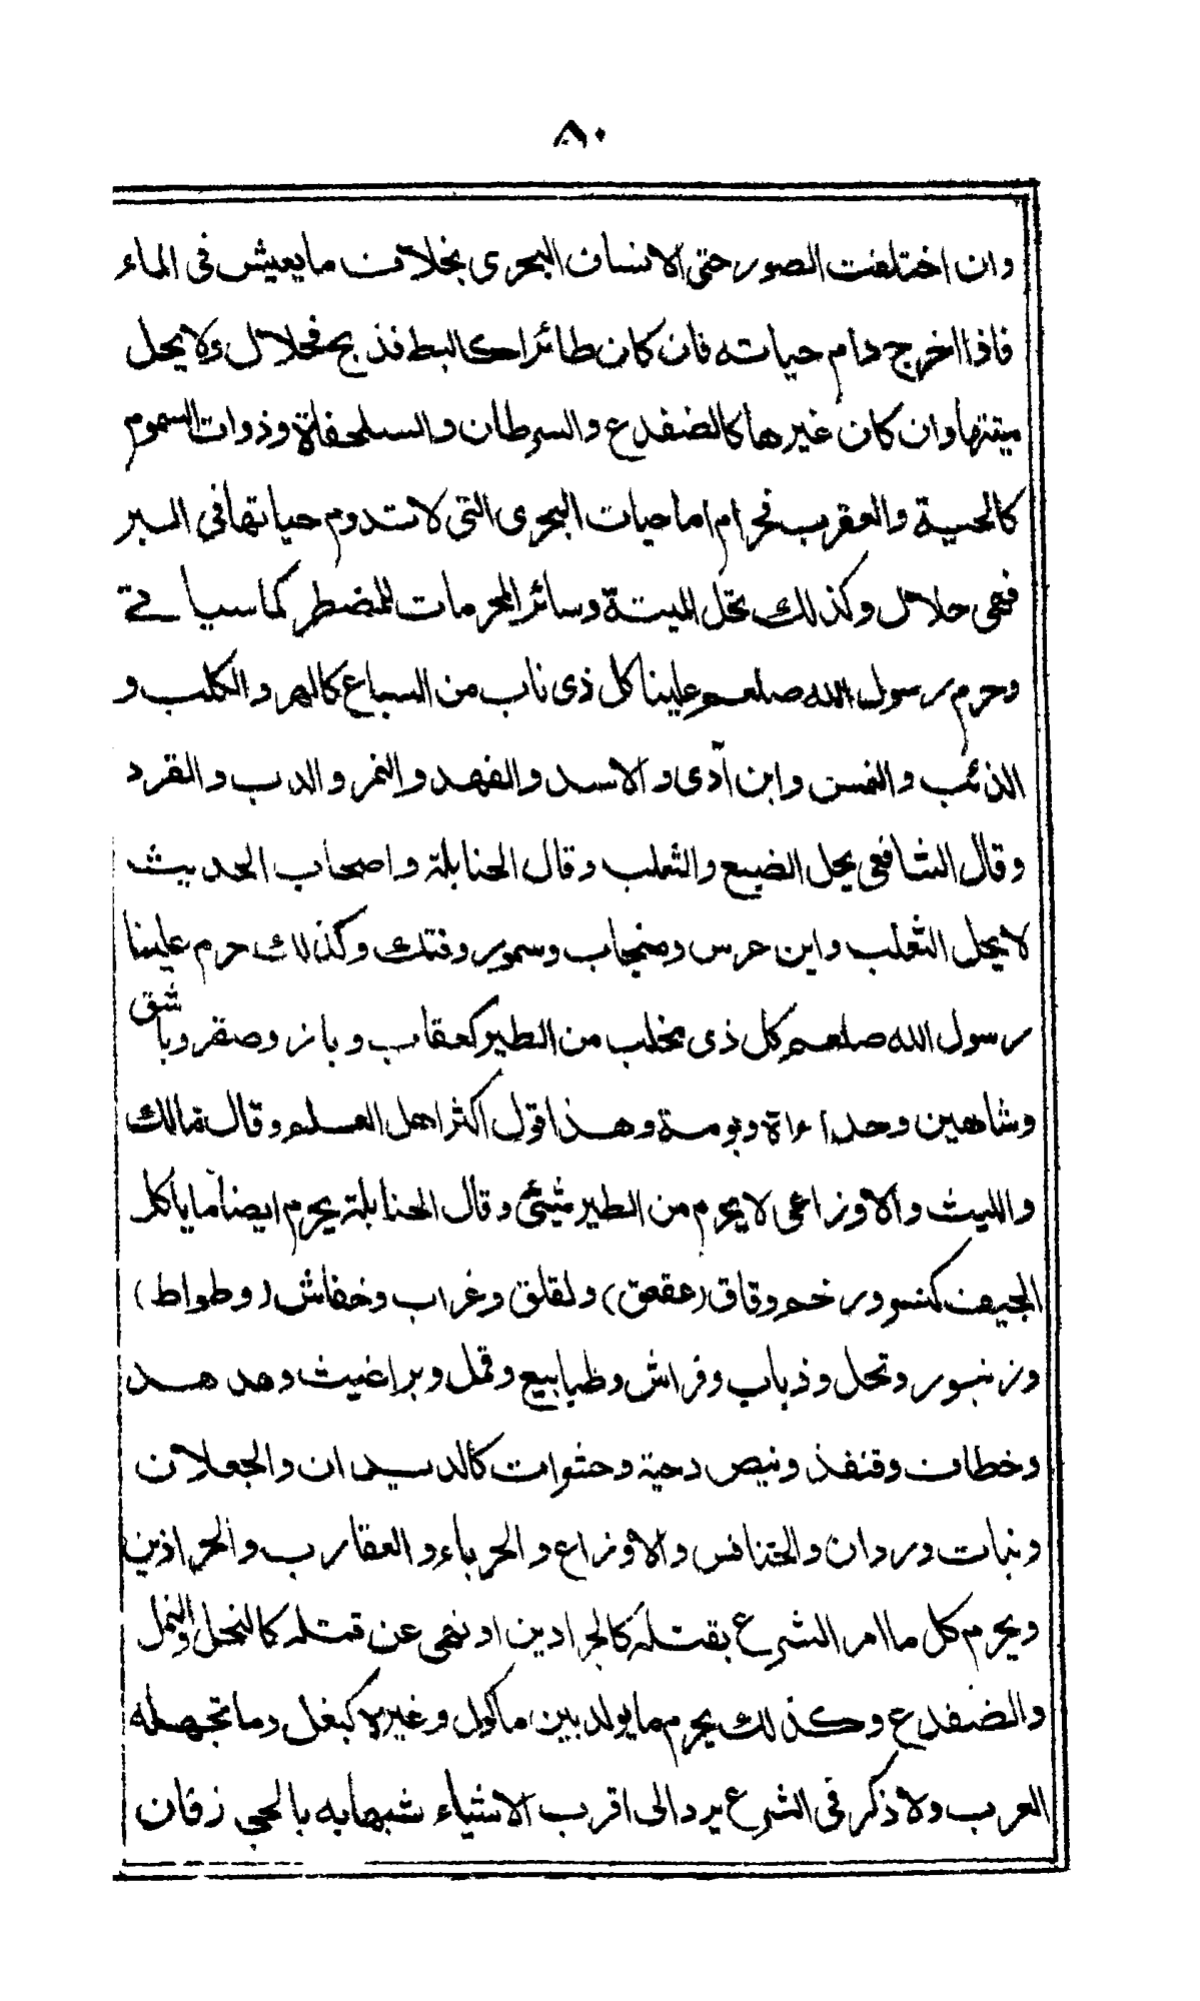 ٨٠
وان اختلفت الصور حتى الانسان البحرى بخلاف ما يعيش فى الماء
فاذا اخرج دام حياته فان كان طائرا كالبط فذبح فحلال ولا يحل
ميتتها وان كان غيرها كالضفدع والسرطان والسلحفاة وذوات السموم
كالحية والعقرب فحرام اما حيات البحرى التى لا تدوم حياتها فى البر
فهى حلال وكذلك تحل الميتة وسائر المحرمات للمضطر كما سياتے
وحرم رسول الله صلعم علينا كل ذى ناب من السباع كالهر والكلب و
الذئب والنمس وابن آدى والاسد والفهد والنمر والدب والقرد
وقال الشافعى يحل الضبع والثعلب وقال الحنابلة واصحاب الحديث
لا يحل الثعلب وابن عرس وسنجاب وسمور وفتك وكذلك حرم علينا
رسول الله صلعم كل ذى مخلب من الطير كعقاب وباز وصقر وباشق
وشاهين وحداءاة وبومة وهذا قول اكثر اهل العلم وقال مالك
والليث والاوزاعى لا يحرم من الطير شيئ وقال الحنابلة يحرم ايضا ما ياكل
الجيف كنسر ورخم وقاق (عقعق) ولقلق وغراب وخفاش (وطواط)
وزنبور ونحل وذباب وفراش وطبابيع وقمل وبراغيث وهدهد
وخطاف وقنفذ ونيص وحية وحشوات كالديدان والجعلان
وبنات وردان والخنافس والاوزاع والحرباء والعقارب والحراذين
ويحرم كل ما امر الشرع بقتله كالجرادين او نهى عن قتله كالنحل والنمل
والضفدع وكذلك يحرم ما يولد بين ماكول وغيره كبغل وما تجهله
العرب ولا ذكر فى الشرع يرد الى اقرب الاشياء شبها به بالحجازفان